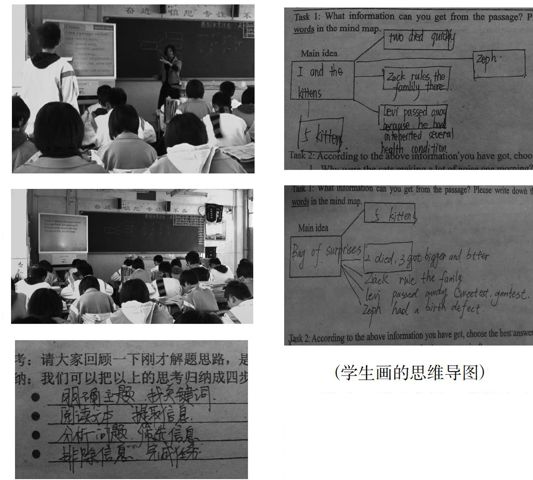 考：请大家回顾一下刚才解题思路，是
纳：我们可以把以上的思考归纳成四步
明确主题 找关键词
阅读文本 提取信息
分析问题 筛选信息
排除信息 完成任务
Task 1: What information can you get from the passage? P
words in the mind map.
two died quickly
Main idea
Zeph.
I and the kittens
Zack rules the
family there.
Levi passed away
because he had
inherited several
health condition
5 kitten
Task 2: According to the above information you have got, choo
Task 1: What information can you get from the passage? Please write down
words in the mind map.
5 kitten
Main idea
Bag of surprises
2 died, 3 got bigger and btter
Zack rule the family
Levi passed away Sweetest, gentest.
Zeph had a birth defect
Task 2: According to the above information you have got, choose the best answer
(学生画的思维导图)